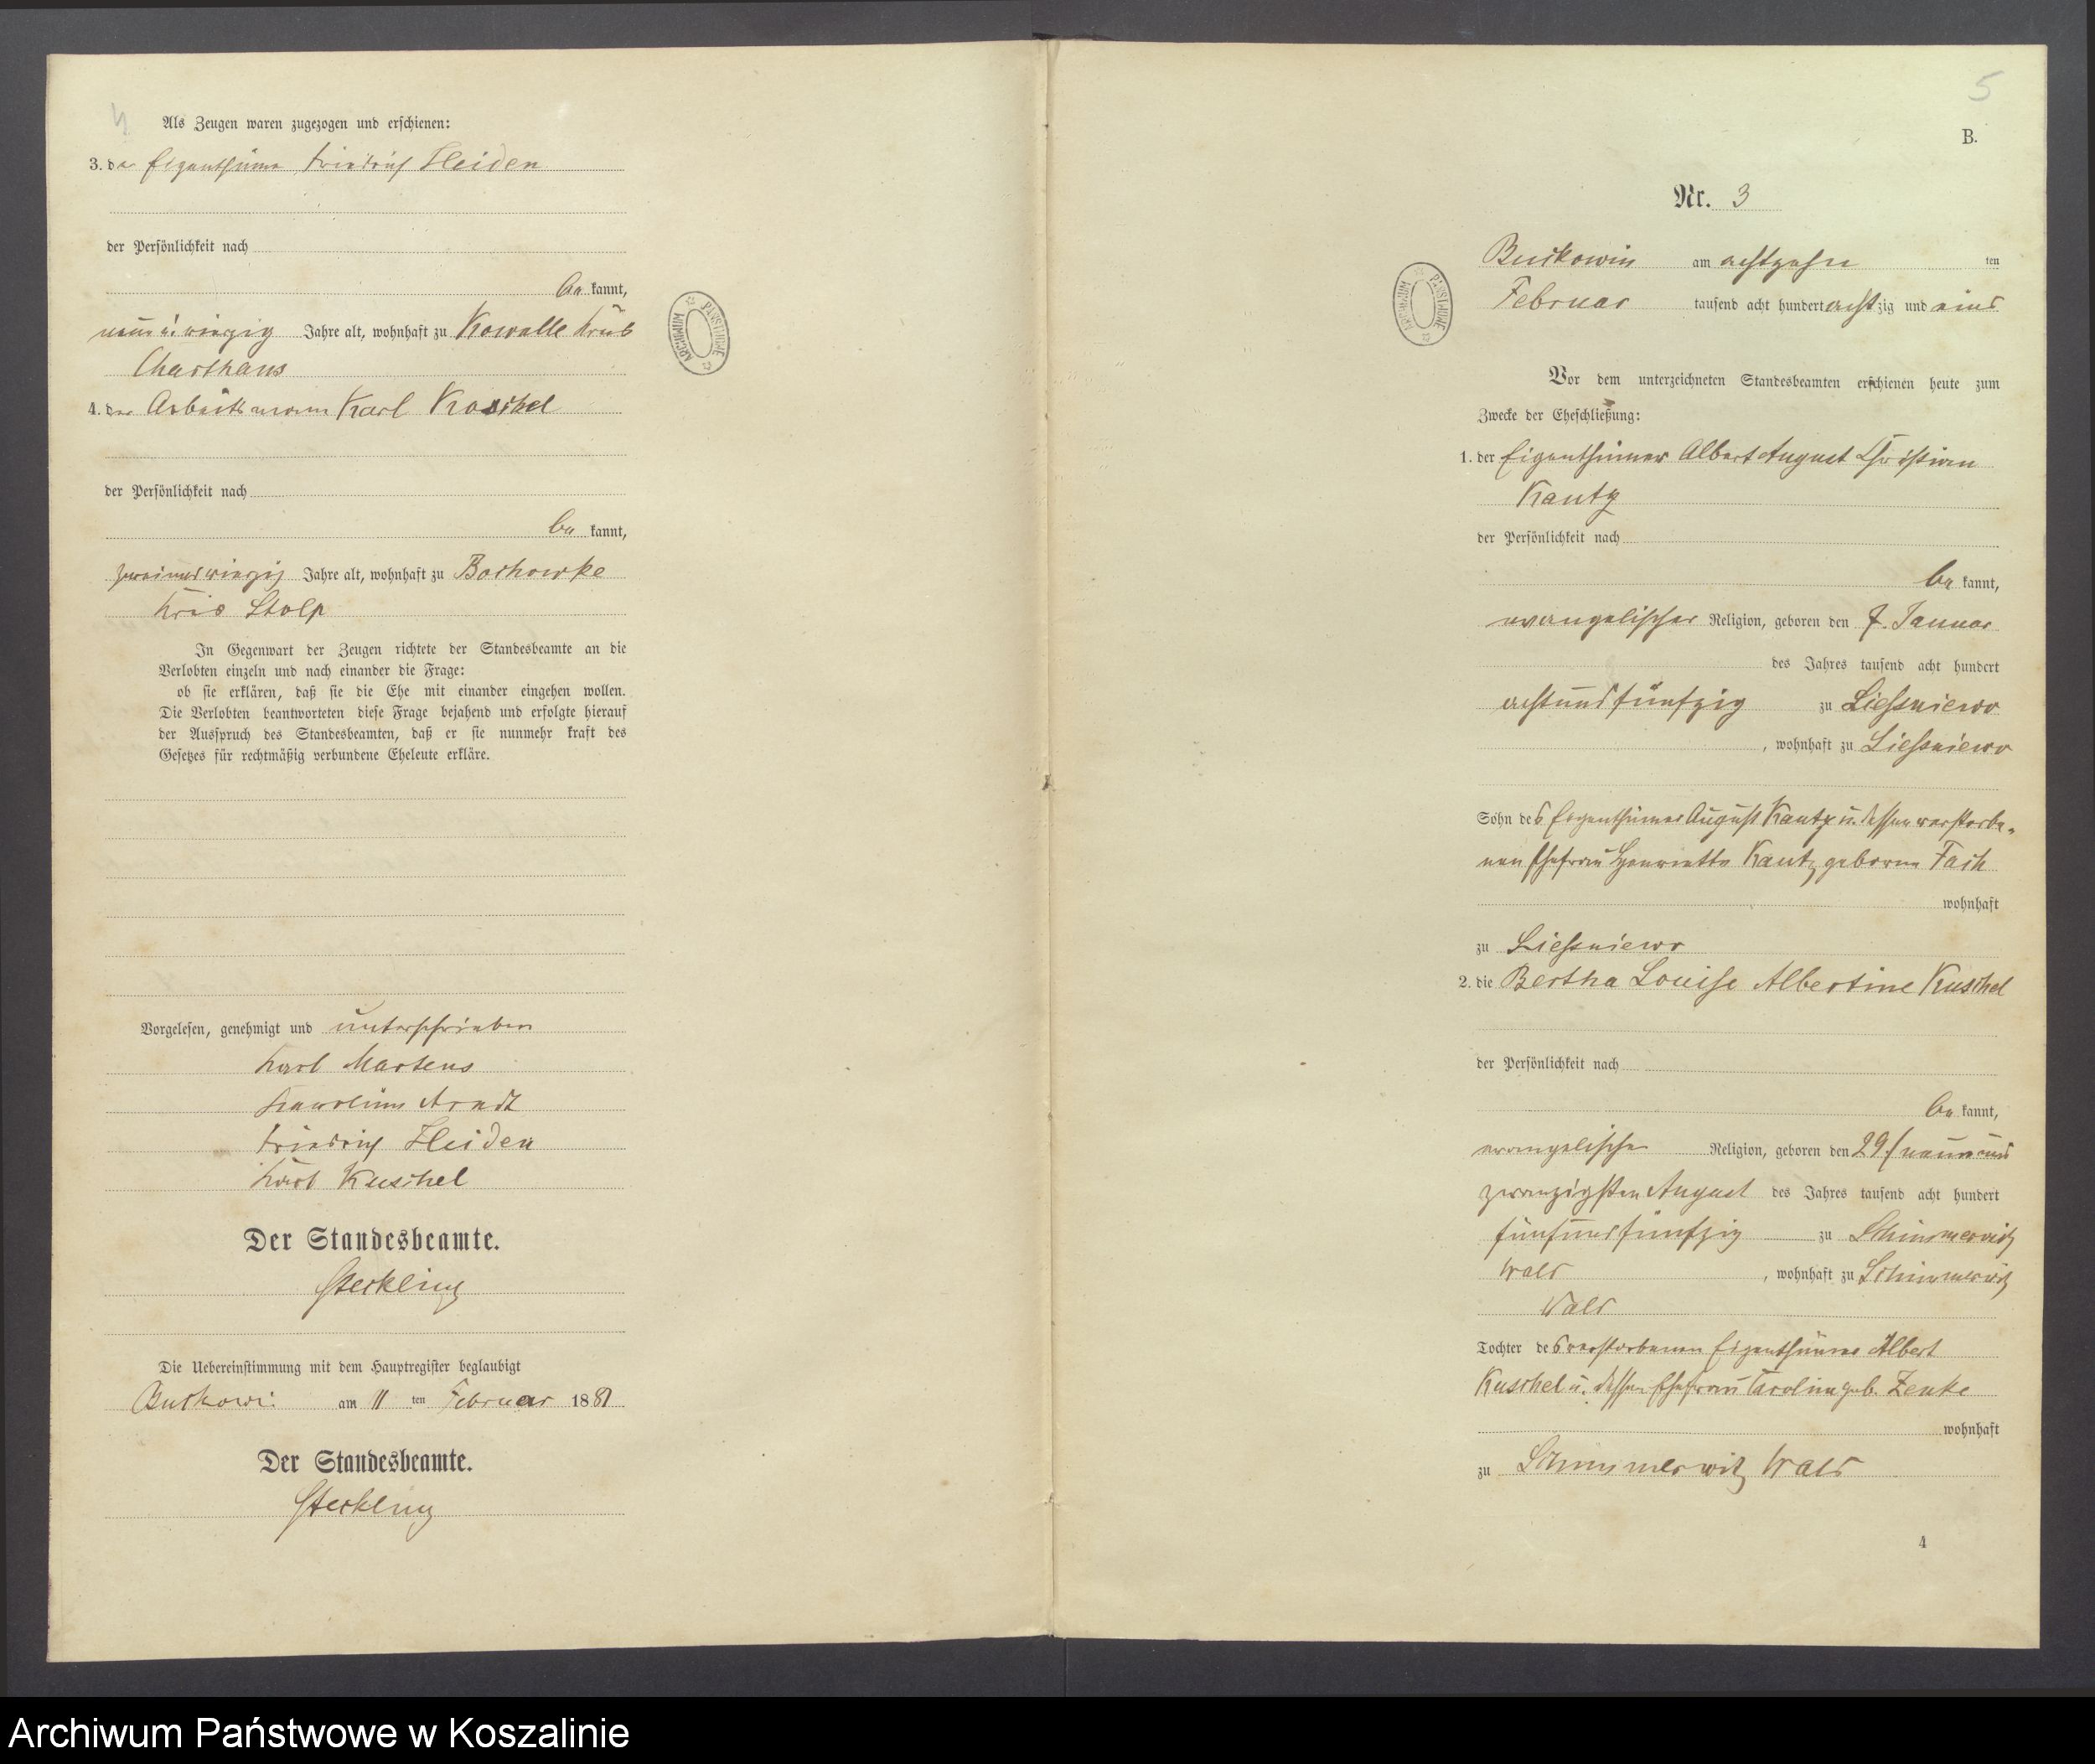 4
Als Zeugen waren zugezogen und erschienen:
3. der Eigenthümer Friedrich Heiden
der Persönlichkeit nach
be kannt,
neun u. vierzig Jahre alt, wohnhaft zu Kowalle Kreis
Charthaus
4. der Arbeitsmann Karl Kuschel
der Persönlichkeit nach
be kannt,
zweiundvierzig Jahre alt, wohnhaft zu Bochowke
Kreis Stolp
In Gegenwart der Zeugen richtete der Standesbeamte an die
Verlobten einzeln und nach einander die Frage:
ob sie erklären, daß sie die Ehe mit einander eingehen wollen.
Die Verlobten beantworteten diese Frage bejahend und erfolgte hierauf
der Ausspruch des Standesbeamten, daß er sie nunmehr kraft des
Gesetzes für rechtmäßig verbundene Eheleute erkläre.
Vorgelesen, genehmigt und unterschrieben
Karl Martens
Karoline Arndt
Friedrich Heiden
Karl Kuschel
Der Standesbeamte.
Steckling
Die Uebereinstimmung mit dem Hauptregister beglaubigt
am 11 ten Februar 1881
Der Standesbeamte.
Steckling
ARCHIWUM PAŃSTWOWE
5
B.
Nr. 3
Buckowin am achtzehn ten
Februar tausend acht hundert achtzig und eins
Vor dem unterzeichneten Standesbeamten erschienen heute zum
Zwecke der Eheschließung:
1. der Eigenthümer Albert August Christian
Kautz
der Persönlichkeit nach
be kannt,
evangelischer Religion, geboren den 7. Januar
des Jahres tausend acht hundert
achtundfünfzig zu Ließniewo
, wohnhaft zu Ließniewo
Sohn des Eigenthümer August Kautz u. dessen verstorbe-
nen Ehefrau Henriette Kautz geborne Fach
wohnhaft
zu Ließniewo
2. die Bertha Louise Albertine Kuschel
der Persönlichkeit nach
be kannt,
evangelischer Religion, geboren den 29./ neunund
zwanzigsten August des Jahres tausend acht hundert
fünfundfünfzig zu Schimmerwitz
Wald , wohnhaft zu Schimmerwitz
Wald
Tochter des verstorbenen Eigenthümer Albert
Kuschel u. dessen Ehefrau Caroline geb. Zenke
wohnhaft
zu Schimmerwitz Wald
4
ARCHIWUM PAŃSTWOWE
Archiwum Państwowe w Koszalinie